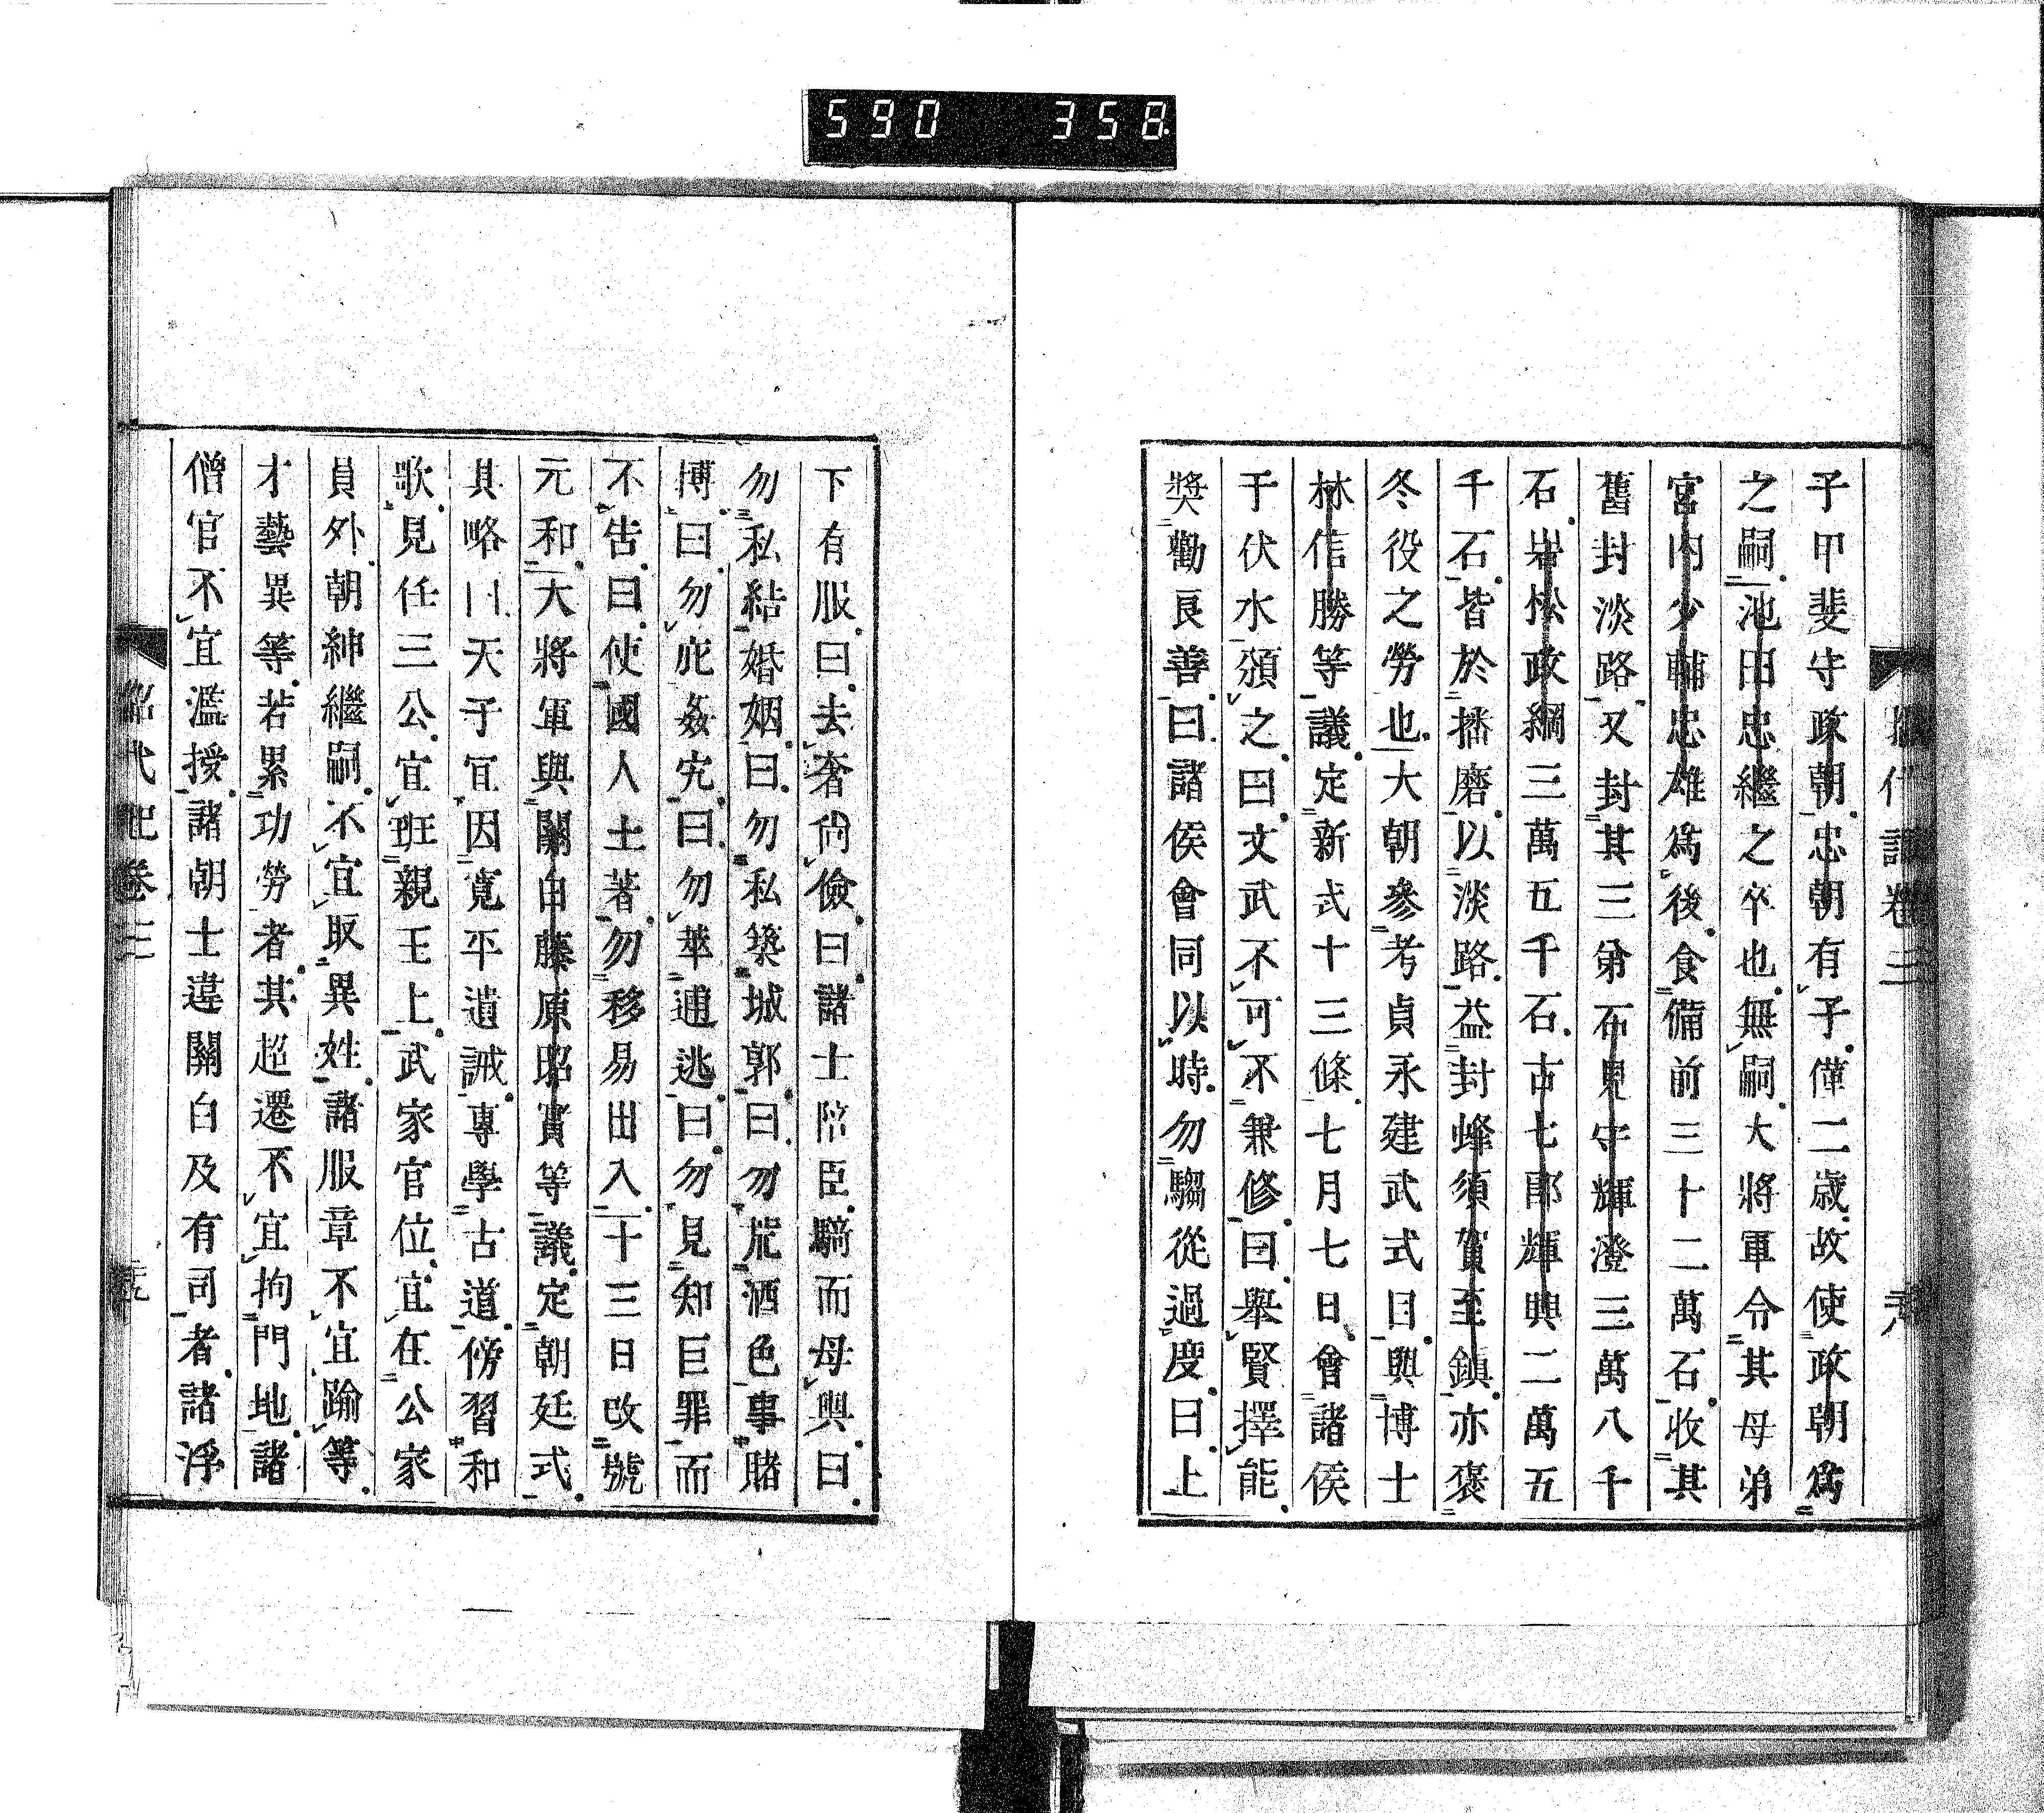 590 358
子甲斐守政朝忠朝有子僅二歲故使政朝爲
之嗣池田忠繼之卒也無嗣大將軍令其母弟
宮内少輔忠雄爲後食備前三十二萬石收其
舊封淡路又封其三弟石見守輝澄三萬八千
石岩松政綱三萬五千石古七郎輝興二萬五
千石皆於播磨以淡路益封蜂須賀至鎮亦褒
冬役之勞也大朝參考貞永建武式目與博士
林信勝等議定新式十三條七月七日會諸侯
于伏水頒之曰文武不可不兼修曰舉賢擇能
奬勸良善曰諸侯會同以時勿騶從過度曰上
下有服曰去奢尙儉曰諸士陪臣騎而毋輿曰
勿私結婚姻曰勿私築城郭曰勿荒酒色事賭
博曰勿庇姦宄曰勿萃逋逃曰勿見知巨罪而
不告曰使國人土著勿移易出入十三日改號
元和大將軍與關白藤原昭實等議定朝廷式
其略曰天子宜因寬平遺誡專學古道傍習和
歌見任三公宜班親王上武家官位宜在公家
員外朝紳繼嗣不宜取異姓諸服章不宜踰等
才藝異等若累功勞者其超遷不宜拘門地諸
僧官不宜濫授諸朝士違關白及有司者諸浮
昭代記卷三